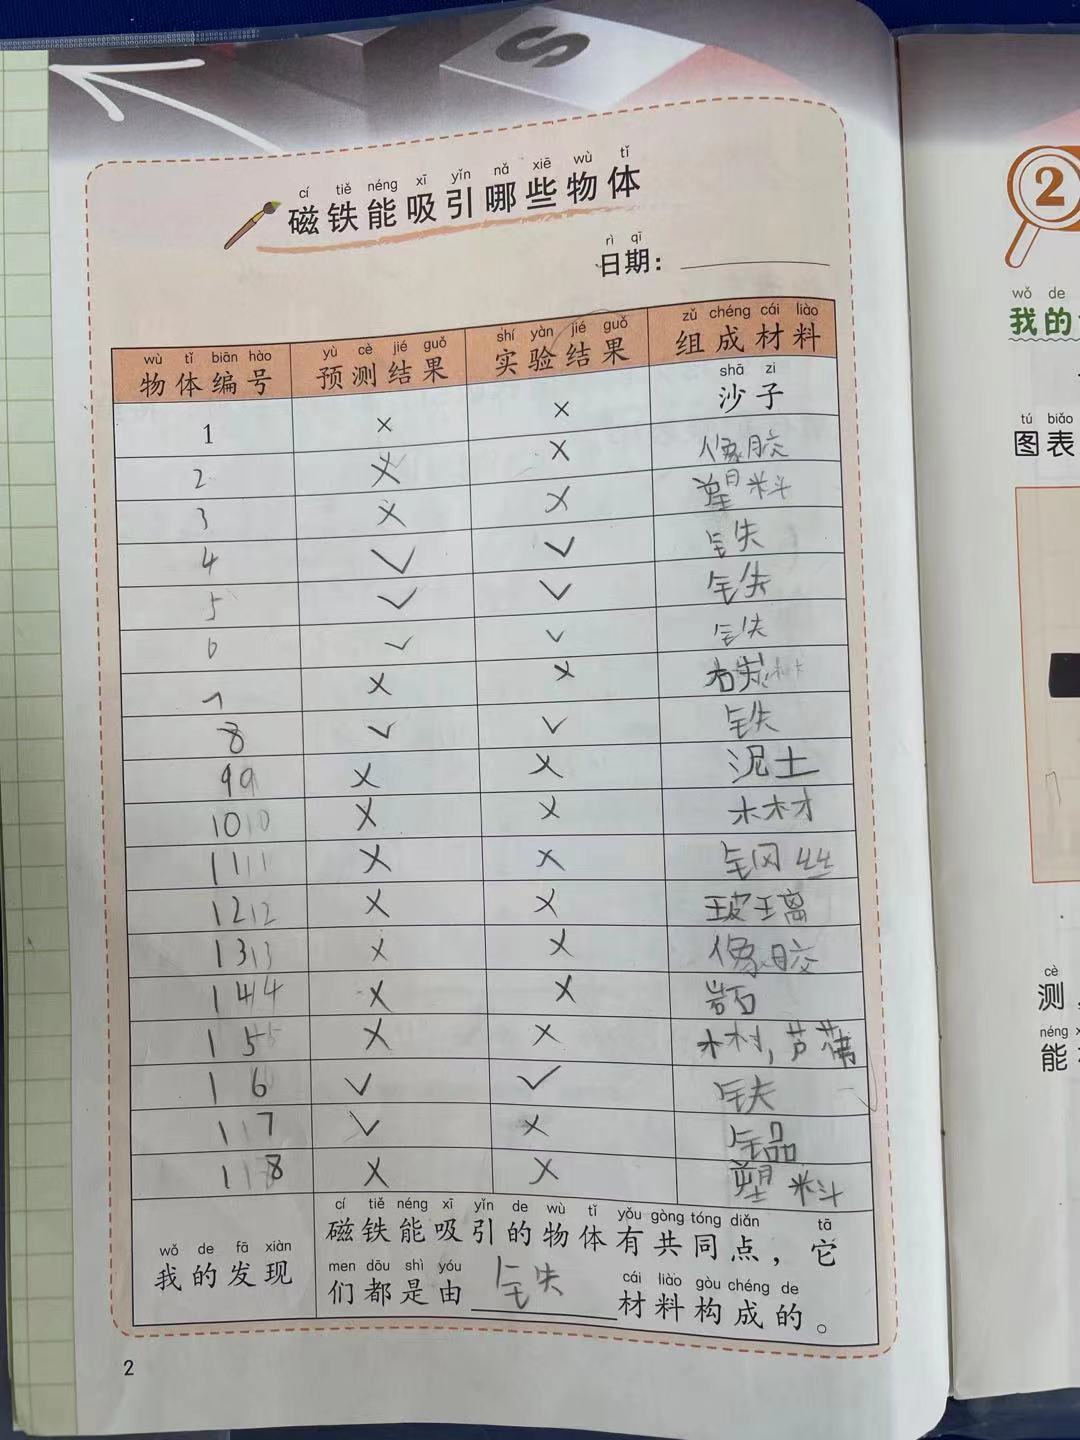 S
cí tiě néng xī yǐn nǎ xiē wù tǐ
磁铁能吸引哪些物体
rì qī
日期：
wù tǐ biān hào yù cè jié guǒ shí yàn jié guǒ zǔ chéng cái liào
物体编号 预测结果 实验结果 组成材料
shā zi
1 × × 沙子
2 × × 橡胶
3 × × 塑料
4 ✓ ✓ 铁
5 ✓ ✓ 铁
6 ✓ ✓ 铁
7 × ×
8 ✓ ✓ 铁
9 × × 泥土
10 × × 木材
11 × × 钢丝
12 × × 玻璃
13 × × 橡胶
14 × × 岩石
15 × × 木材，芦苇
16 ✓ ✓ 铁
17 ✓ × 铝
18 × × 塑料
wǒ de fā xiàn
我的发现
cí tiě néng xī yǐn de wù tǐ yǒu gòng tóng diǎn tā
磁铁能吸引的物体有共同点，它
men dōu shì yóu cái liào gòu chéng de
们都是由铁材料构成的。
2
2
wǒ de
我的
tú biǎo
图表
cè
测
néng
能